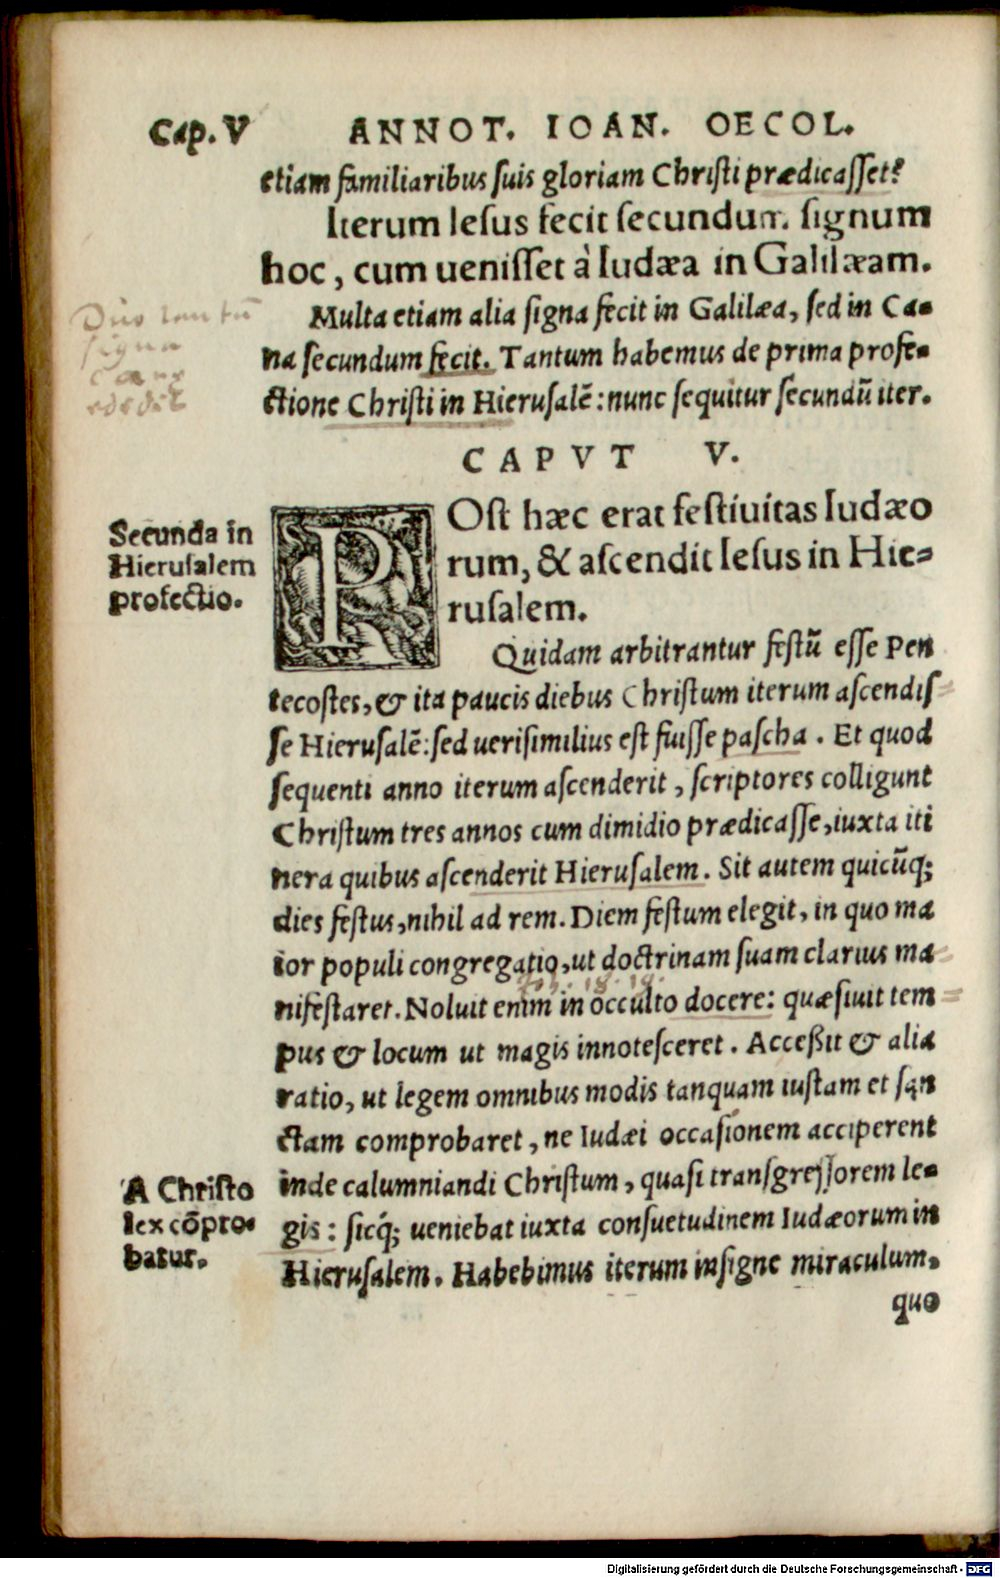 Cap. V ANNOT. IOAN. OECOL.
etiam familiaribus suis gloriam Christi prædicasset?
Iterum Iesus fecit secundum signum
hoc, cum uenisset à Iudæa in Galilæam.
Multa etiam alia signa fecit in Galilæa, sed in Ca-
na secundum fecit. Tantum habemus de prima profe-
ctione Christi in Hierusalẽ: nunc sequitur secundũ iter.
Duo tantũ
signa
edidit
CAPVT V.
Secunda in
Hierusalem
profectio.
POst hæc erat festiuitas Iudæo
rum, & ascendit Iesus in Hie-
rusalem.
Quidam arbitrantur festũ esse Pen
tecostes, & ita paucis diebus Christum iterum ascendis
se Hierusalẽ: sed uerisimilius est fuisse pascha. Et quod
sequenti anno iterum ascenderit, scriptores colligunt
Christum tres annos cum dimidio prædicasse, iuxta iti
nera quibus ascenderit Hierusalem. Sit autem quicũq;
dies festus, nihil ad rem. Diem festum elegit, in quo ma
ior populi congregatio, ut doctrinam suam clarius ma
nifestaret. Noluit enim in occulto docere: quæsiuit tem
pus & locum ut magis innotesceret. Acceßit & alia
ratio, ut legem omnibus modis tanquam iustam et san
ctam comprobaret, ne Iudæi occasionem acciperent
inde calumniandi Christum, quasi transgressorem le-
gis: sicq́; ueniebat iuxta consuetudinem Iudæorum in
Hierusalem. Habebimus iterum insigne miraculum,
A Christo
lex cõpro-
batur.
quo
Digitalisierung gefördert durch die Deutsche Forschungsgemeinschaft - DFG